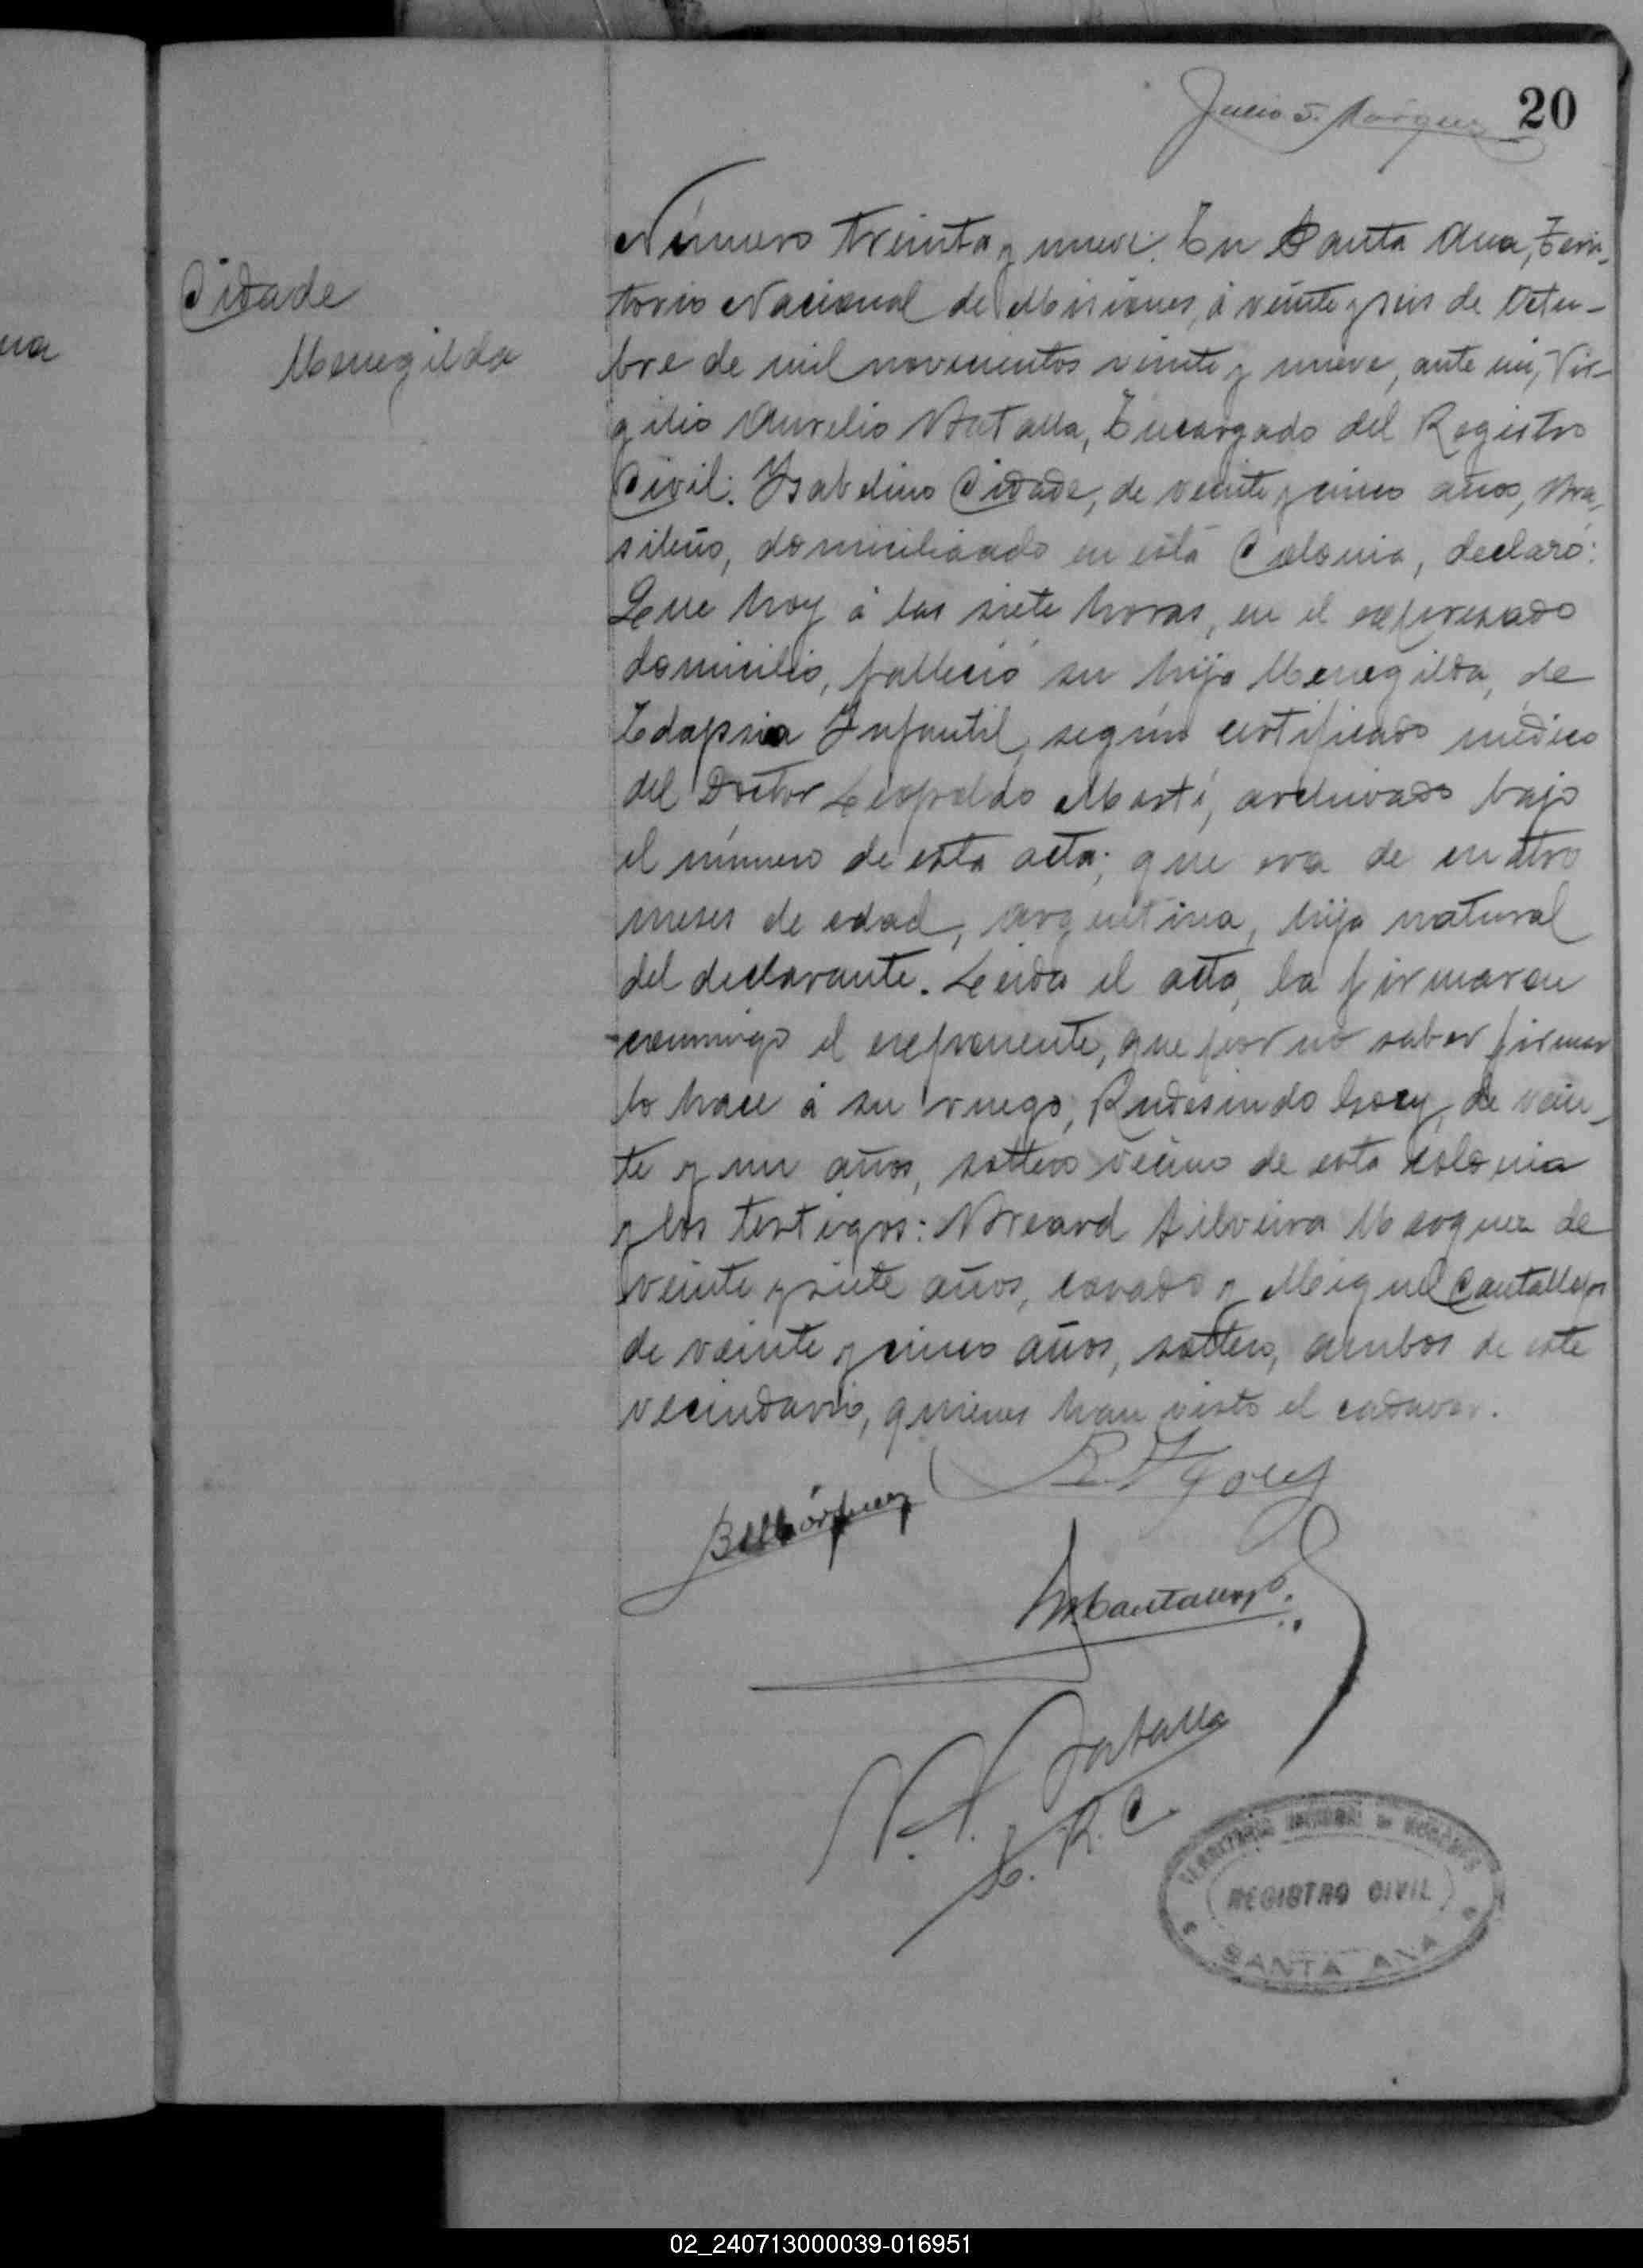 20
Cidade
Menegilda
Número treinta y nueve: En Santa Ana, Terri-
torio Nacional de Misiones, á veinte y seis de Octu-
bre de mil novecientos veinte y nueve, ante mi, Vir-
gilio Aurelio Batalla, Encargado del Registro
Civil: Ysabelino Cidade, de veinte y cinco años, Bra-
sileño, domiciliado en esta Colonia, declaró:
Que hoy á las siete horas, en el expresado
domicilio, falleció su hija Menegilda, de
Infantil, según certificado médico
del Doctor Leopoldo Martí, archivado bajo
el número de esta acta; que era de cuatro
meses de edad, argentina, hija natural
del declarante. Leida el acta, la firmaron
conmigo el exponente, que por no saber firmar
lo hace á su ruego, Rudesindo de vein-
te y un años, soltero vecino de esta colonia
y los testigos: Silveira de
veinte y siete años, casado y Miguel Cantallops
de veinte y cinco años, soltero, ambos de este
vecindario, quienes han visto el cadaver.
V. A. Batalla
E. R. C
TERRITORIO NACIONAL DE MISIONES
REGISTRO CIVIL
SANTA ANA
02_240713000039-016951